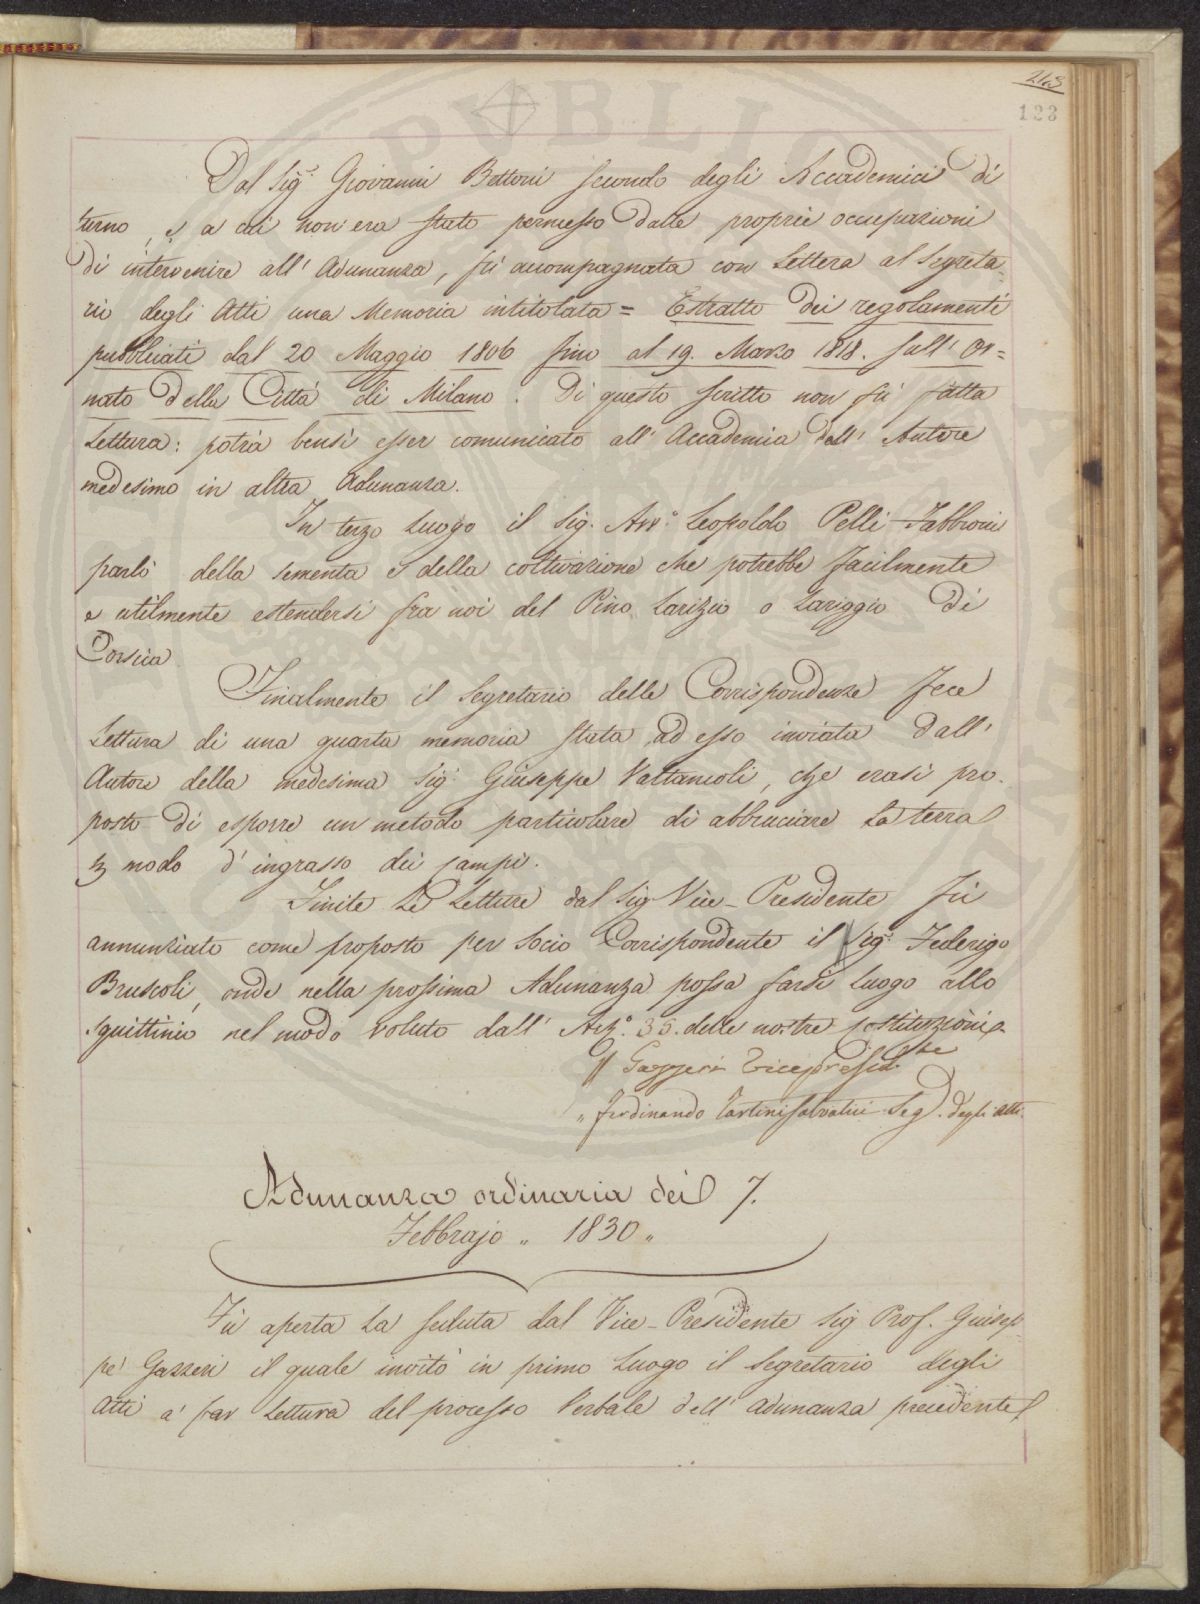 243
123
Dal Sig.r Giovanni Bettoni secondo degli Accademici di
turno, e a cui non era stato permesso dalle proprie occupazioni
di intervenire all' Adunanza, fù accompagnata con Lettera al Segreta
rio degli Atti una Memoria intitolata = Estratto dei regolamenti
pubblicati dal 20 Maggio 1806 fino al 19. Marzo 1818. sull' Or=
nato della Città di Milano. Di questo scritto non fù fatta
Lettura: potrà bensì esser comunicato all' Accademia dall' Autore
medesimo in altra Adunanza.
In terzo Luogo il Sig. Avv.o Leopoldo Pelli-Fabbroni
parlò della sementa e della coltivazione che potrebbe facilmente
e utilmente estendersi fra noi del Pino Larizio o Lariggio di
Corsica
Finalmente il Segretario delle Corrispondenze fece
Lettura di una quarta memoria stata ad esso inviata dall'
Autore della medesima Sig.r Giuseppe Vallancoli, che erasi pro.
posto di esporre un metodo particolare di abbruciare La terra
modo d' ingrasso dei campi.
Finite Le Letture dal Sig Vice-Presidente fù
annunziato come proposto per Socio Corrispondente il Sig.r Federigo
Bruscoli, onde nella prossima Adunanza possa farsi Luogo allo
squittinio nel modo voluto dall' Art.o 35. delle nostre costituzioni
Gazzeri Vicepresid.te
" Ferdinando Tartini Salvatici Seg. degli Atti
Adunanza ordinaria dei 7.
Febbrajo " 1830 "
Fù aperta La seduta dal Vice-Presidente Sig Prof. Guisep
pe' Gazzeri il quale invitò in primo Luogo il Segretario degli
Atti a' far Lettura del processo Verbale dell' Adunanza precedente